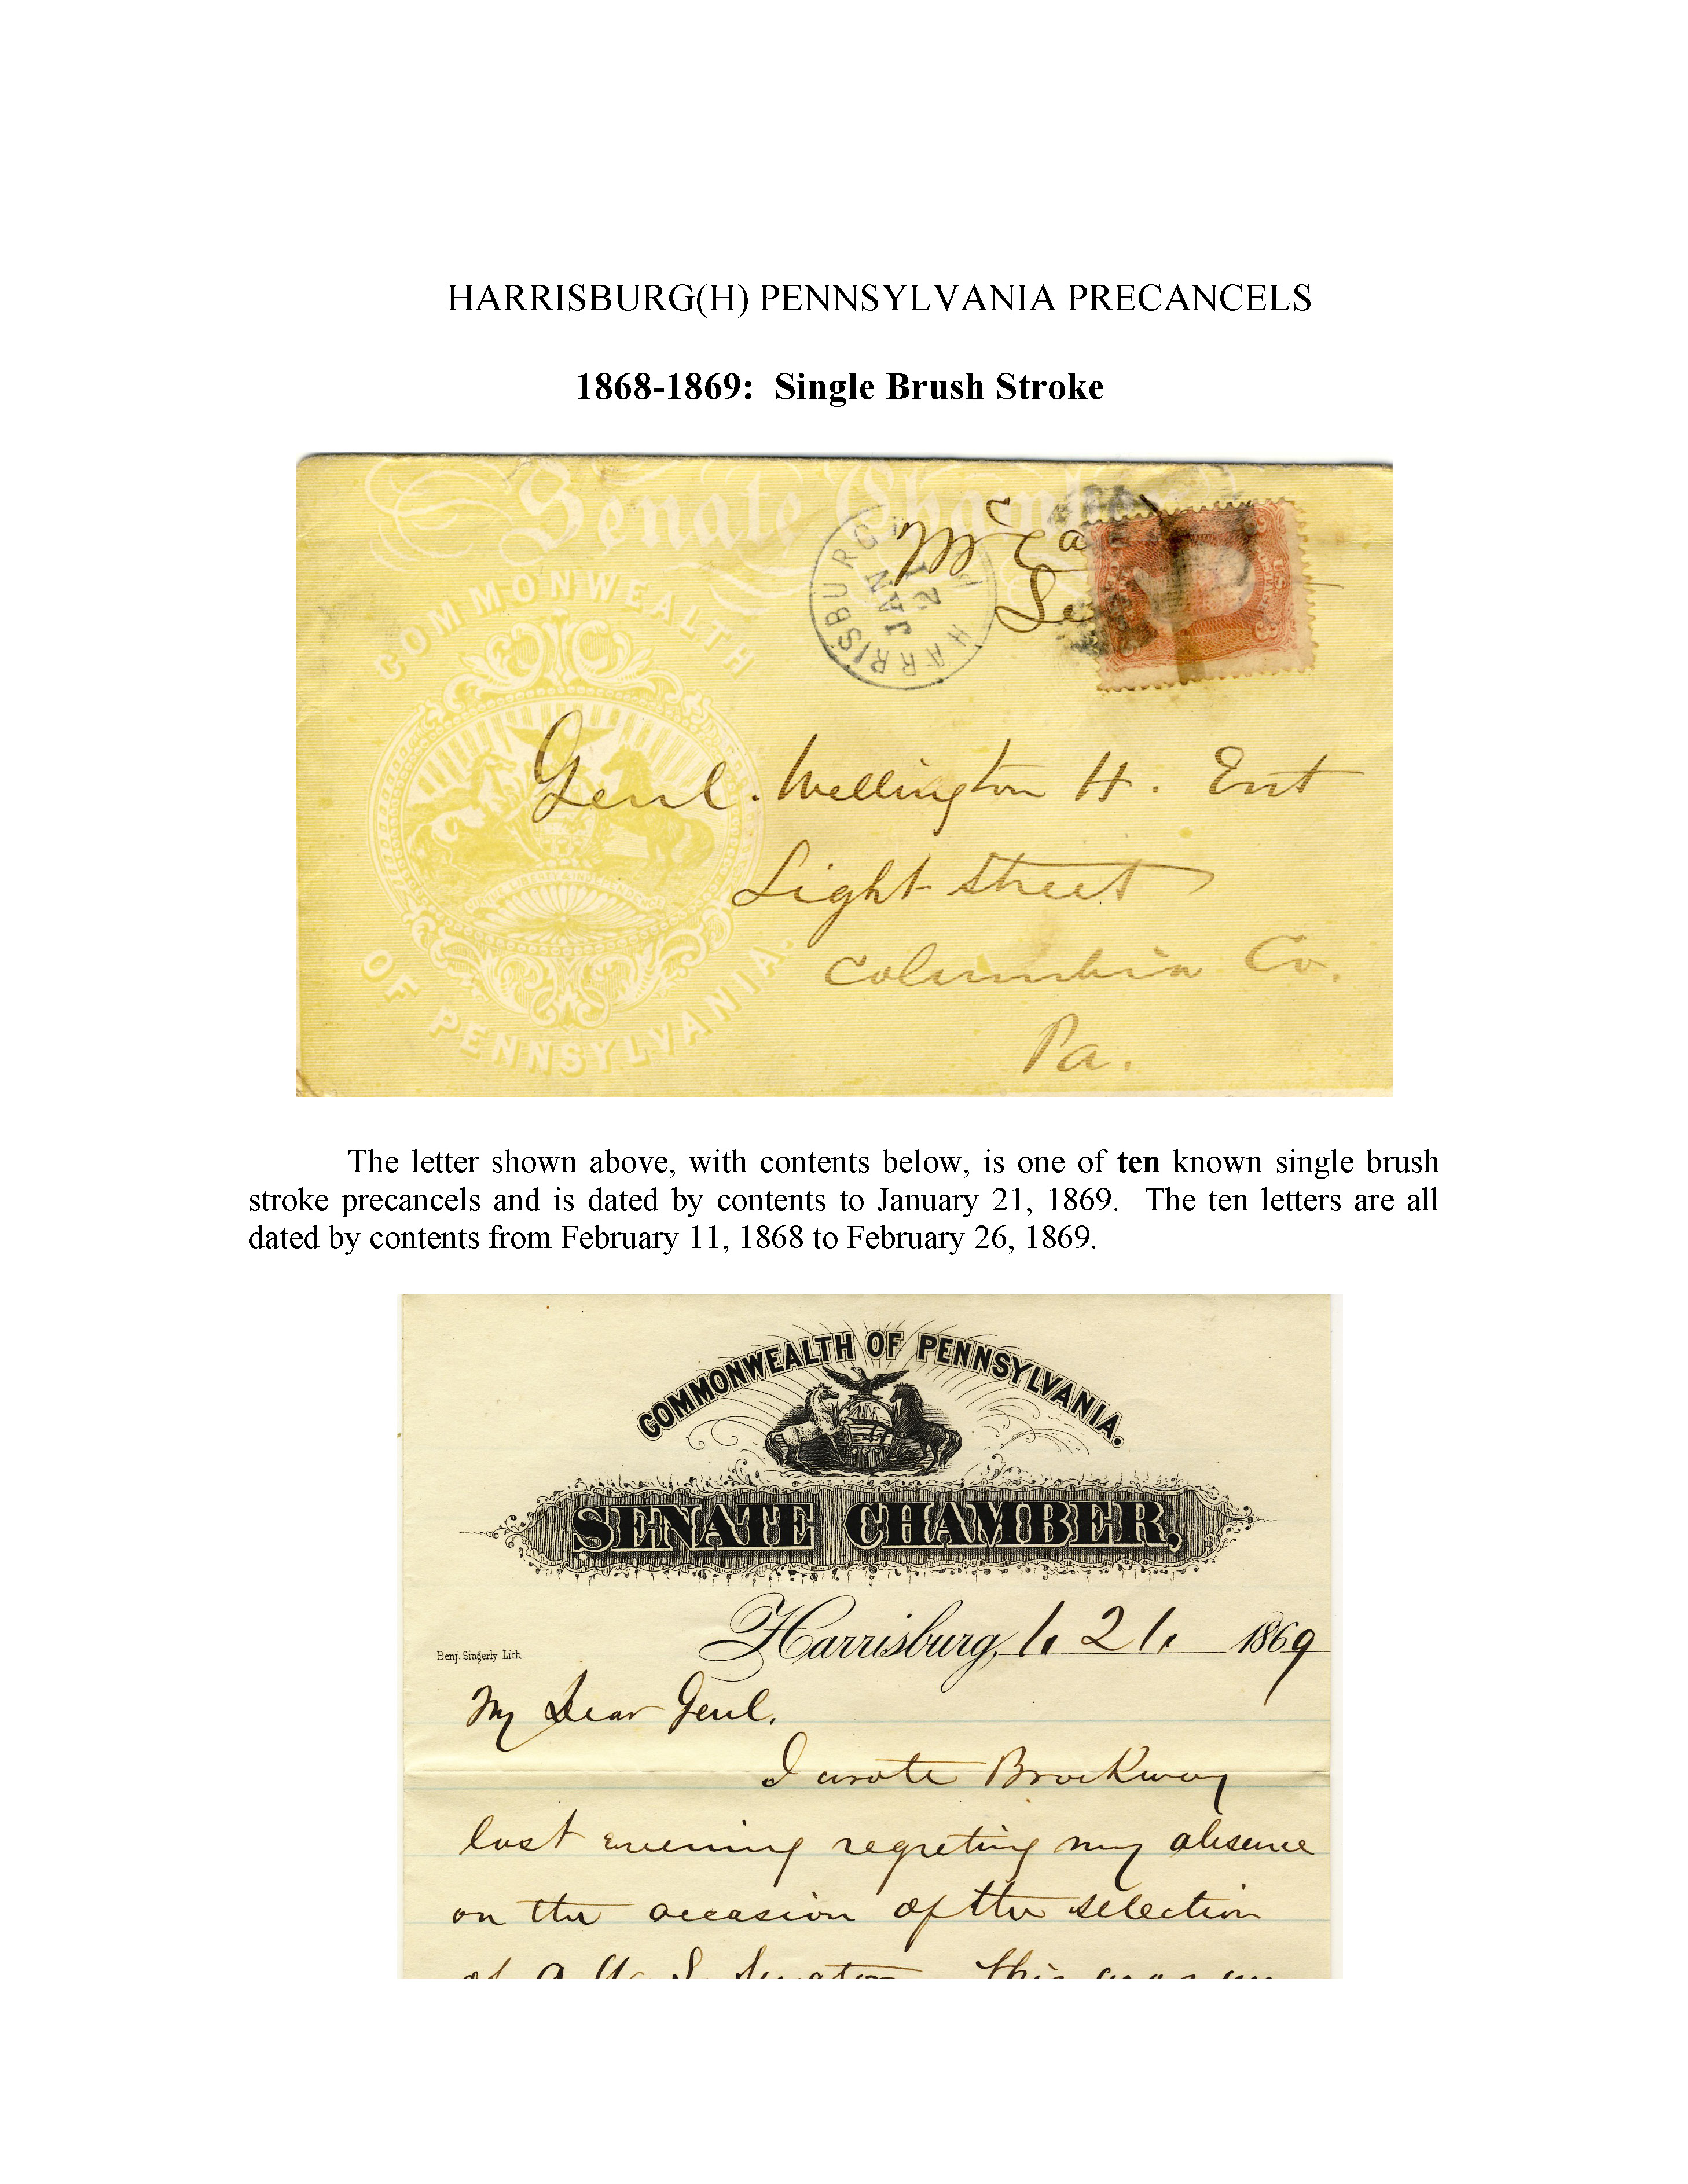 HARRISBURG(H) PENNSYLVANIA PRECANCELS
1868-1869: Single Brush Stroke
Senate Chamber
COMMONWEALTH
OF PENNSYLVANIA.
HARRISBURG
JAN
21
Genl. Wellington H. Ent
Light Street
Columbia Co.
Pa.
The letter shown above, with contents below, is one of ten known single brush
stroke precancels and is dated by contents to January 21, 1869. The ten letters are all
dated by contents from February 11, 1868 to February 26, 1869.
COMMONWEALTH OF PENNSYLVANIA.
SENATE CHAMBER,
Benj. Singerly Lith.
Harrisburg, 1. 21. 1869
My Dear Genl.
I wrote Brockway
last evening regreting my absence
on the occasion of the selection
of a U. S. Senator